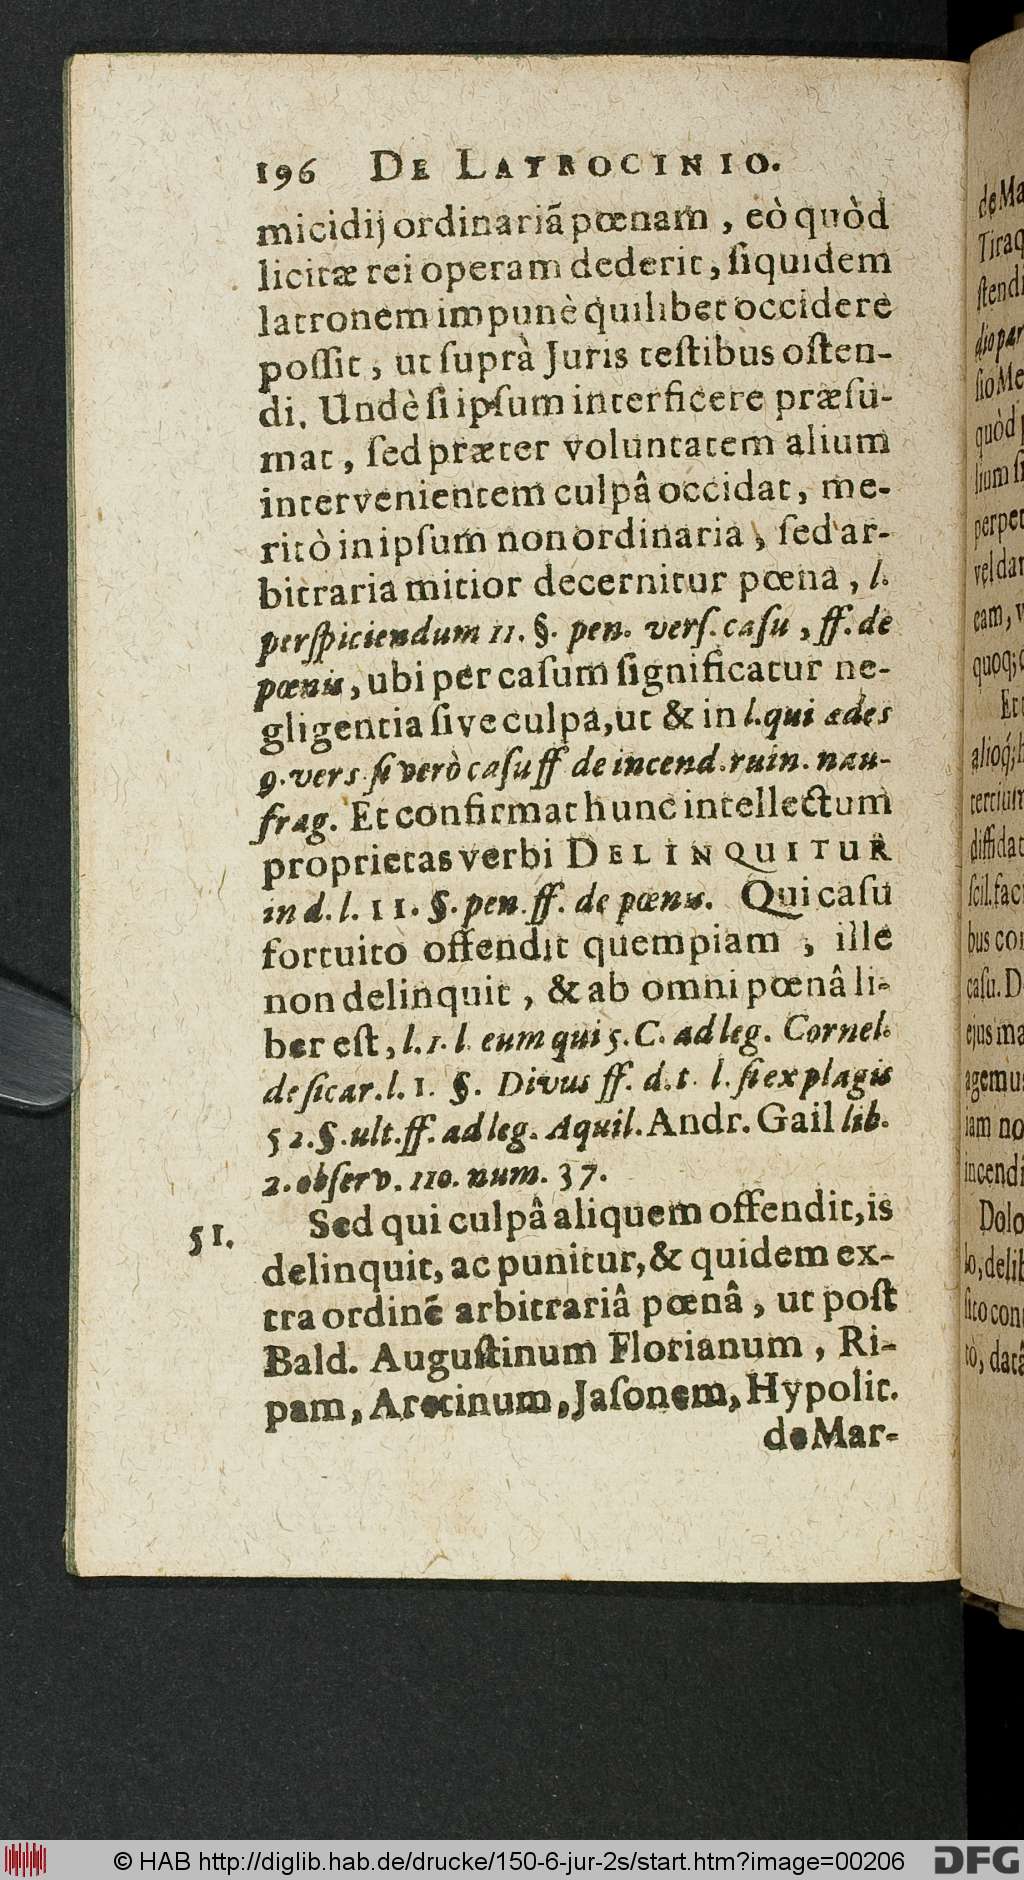 196 DE LATROCINIO.
micidij ordinariã pœnam, eò quòd
licitæ rei operam dederit, ſiquidem
latronem impunè quilibet occidere
poſſit, ut ſuprà Juris teſtibus oſten-
di. Undè ſi ipſum interficere præſu-
mat, ſed præter voluntatem alium
intervenientem culpâ occidat, me-
ritò in ipſum non ordinaria, ſed ar-
bitraria mitior decernitur pœna, l.
perſpiciendum 11. §. pen. verſ. caſu, ff. de
pœnis, ubi per caſum ſignificatur ne-
gligentia ſive culpa, ut & in l. qui ædes
9. vers. ſi verò caſu ff de incend. ruin. nau-
frag. Et confirmat hunc intellectum
proprietas verbi DELINQUITUR
in d. l. 11. §. pen. ff. de pœnis. Qui caſu
fortuito offendit quempiam, ille
non delinquit, & ab omni pœnâ li-
ber eſt, l. 1. l. eum qui 5. C. ad leg. Cornel.
de ſicar. l. 1. §. Divus ff. d. t. l. ſi ex plagis
52. §. ult. ff. ad leg. Aquil. Andr. Gail lib.
2. obſerv. 110. num. 37.
51. Sed qui culpâ aliquem offendit, is
delinquit, ac punitur, & quidem ex-
tra ordinẽ arbitrariâ pœnâ, ut poſt
Bald. Auguſtinum Florianum, Ri-
pam, Aretinum, Jaſonem, Hypolit.
de Mar-
de Ma
Tiraq
ſtendi
dio par
ſio Me
quòd
lium ſi
perpet
vel dar
eam, v
quoq;
Et
alioq́;
tertium
diffidat
ſcil. faci
bus co
caſu. D
ejus ma
agemus
iam no
incendi
Dolo
lo, delib
ſito con
tò, datâ
© HAB http://diglib.hab.de/drucke/150-6-jur-2s/start.htm?image=00206
DFG